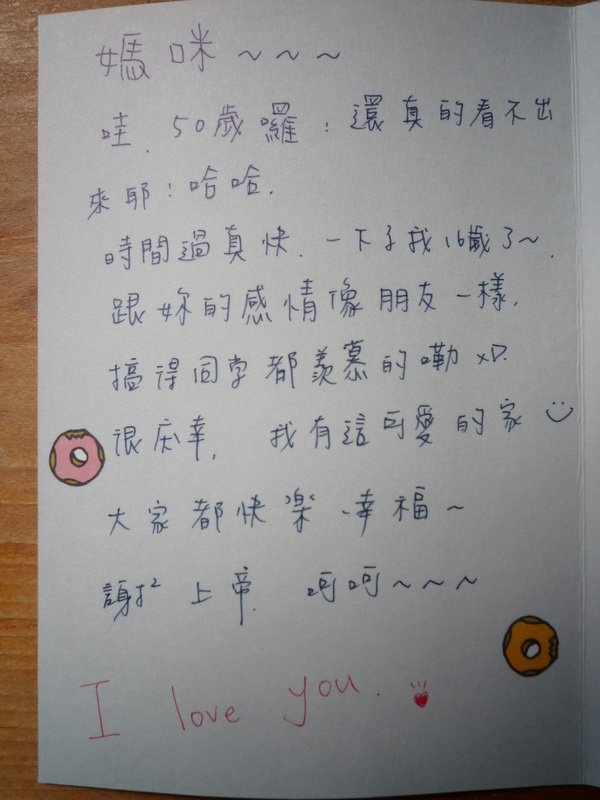 媽咪~~~
哇. 50歲囉!還真的看不出
來耶!哈哈.
時間過真快. 一下子我16歲了~.
跟妳的感情像朋友一樣.
搞得同学都羨慕的嘞 xD.
很庆幸, 我有這可愛的家
大家都快樂、幸福~
謝2 上帝. 呵呵~~~
I love you.